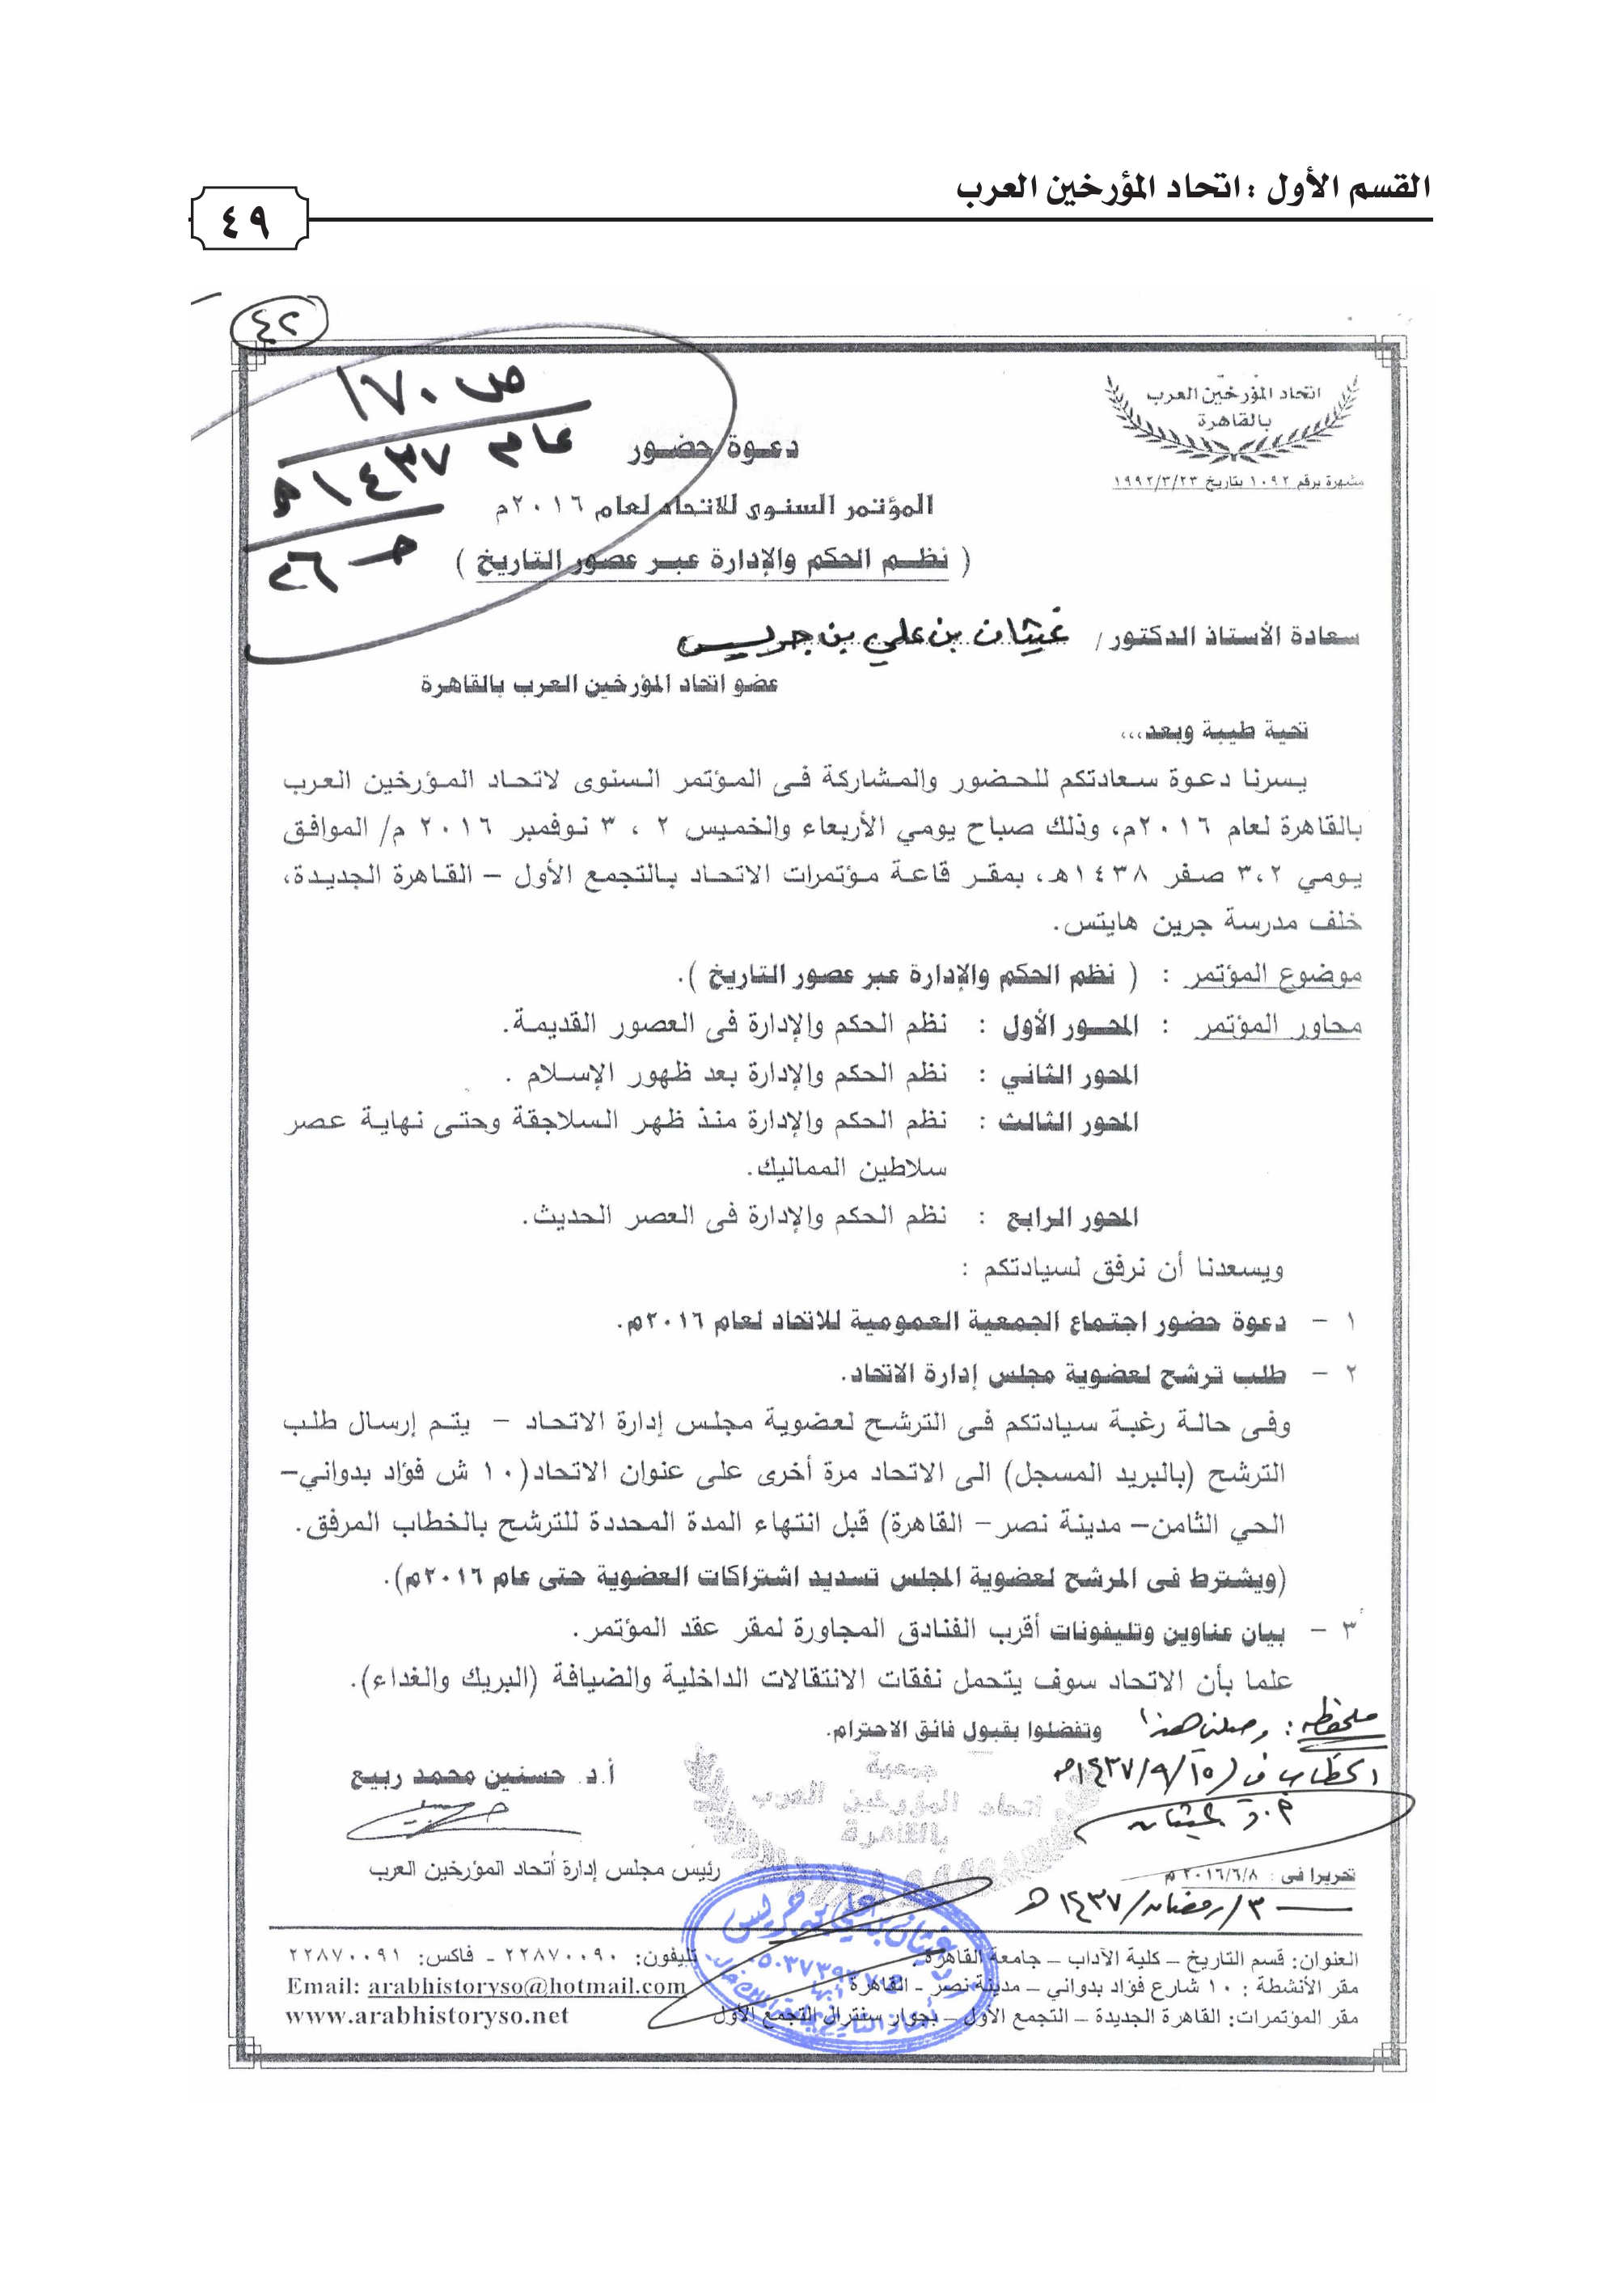 القسم الأول : اتحاد المؤرخين العرب
٤٩
٤٢
ص ١٧٠
عام ١٤٣٧هـ
حـ ٢٦
اتحاد المؤرخين العرب
بالقاهرة
مشهرة برقم ١٠٩٢ بتاريخ ١٩٩٢/٣/٢٣
دعوة حضور
المؤتمر السنوى للاتحاد لعام ٢٠١٦م
( نظم الحكم والإدارة عبر عصور التاريخ )
سعادة الأستاذ الدكتور / غيثان بن علي بن جريس
عضو اتحاد المؤرخين العرب بالقاهرة
تحية طيبة وبعد،،،
يسرنا دعوة سعادتكم للحضور والمشاركة فى المؤتمر السنوى لاتحاد المؤرخين العرب
بالقاهرة لعام ٢٠١٦م، وذلك صباح يومي الأربعاء والخميس ٢ ، ٣ نوفمبر ٢٠١٦ م/ الموافق
يومي ٣،٢ صفر ١٤٣٨هـ، بمقر قاعة مؤتمرات الاتحاد بالتجمع الأول – القاهرة الجديدة،
خلف مدرسة جرين هايتس.
موضوع المؤتمر : ( نظم الحكم والإدارة عبر عصور التاريخ ).
محاور المؤتمر : المحور الأول : نظم الحكم والإدارة فى العصور القديمة.
المحور الثاني : نظم الحكم والإدارة بعد ظهور الإسلام .
المحور الثالث : نظم الحكم والإدارة منذ ظهر السلاجقة وحتى نهاية عصر
سلاطين المماليك.
المحور الرابع : نظم الحكم والإدارة فى العصر الحديث.
ويسعدنا أن نرفق لسيادتكم :
١ – دعوة حضور اجتماع الجمعية العمومية للاتحاد لعام ٢٠١٦م.
٢ – طلب ترشح لعضوية مجلس إدارة الاتحاد.
وفى حالة رغبة سيادتكم فى الترشح لعضوية مجلس إدارة الاتحاد – يتم إرسال طلب
الترشح (بالبريد المسجل) الى الاتحاد مرة أخرى على عنوان الاتحاد(١٠ ش فؤاد بدواني–
الحي الثامن– مدينة نصر– القاهرة) قبل انتهاء المدة المحددة للترشح بالخطاب المرفق.
(ويشترط فى المرشح لعضوية المجلس تسديد اشتراكات العضوية حتى عام ٢٠١٦م).
٣ – بيان عناوين وتليفونات أقرب الفنادق المجاورة لمقر عقد المؤتمر.
علما بأن الاتحاد سوف يتحمل نفقات الانتقالات الداخلية والضيافة (البريك والغداء).
وتفضلوا بقبول فائق الاحترام.
ملحوظة : وصلني هذا
الخطاب في ١٤٣٧/٩/١٥هـ
أ.د. غيثان
جمعية
اتحاد المؤرخين العرب
بالقاهرة
أ.د. حسنين محمد ربيع
رئيس مجلس إدارة أتحاد المؤرخين العرب
تحريرا فى : ٢٠١٦/٦/٨ م
٣/رمضان/١٤٣٧هـ
العنوان: قسم التاريخ – كلية الآداب – جامعة القاهرة.
تليفون: ٢٢٨٧٠٠٩٠ - فاكس: ٢٢٨٧٠٠٩١
مقر الأنشطة : ١٠ شارع فؤاد بدواني – مدينة نصر - القاهرة
Email: arabhistoryso@hotmail.com
مقر المؤتمرات: القاهرة الجديدة – التجمع الأول – بجوار سنترال التجمع الأول
www.arabhistoryso.net
غيثان بن علي بن جريس